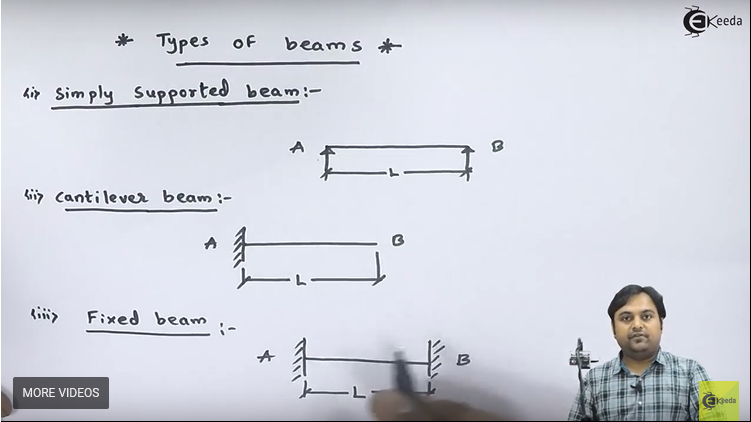 EKeeda
* Types of beams *
(i) Simply Supported beam:-
A B
L
(ii) Cantilever beam:-
A B
L
(iii) Fixed beam:-
A B
L
MORE VIDEOS
EKeeda